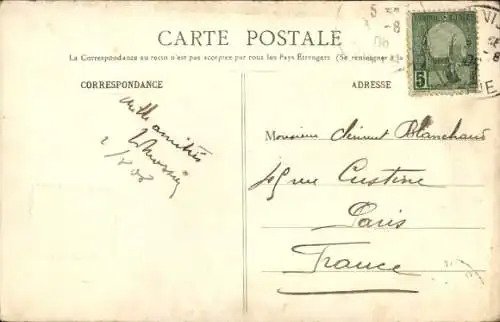 CARTE POSTALE
La Correspondance au recto n'est pas acceptée par tous les Pays Étrangers (Se renseigner à la
CORRESPONDANCE
ADRESSE
5
Mille amitiés
Monsieur Clément Blanchard
45 rue Custine
Paris
France